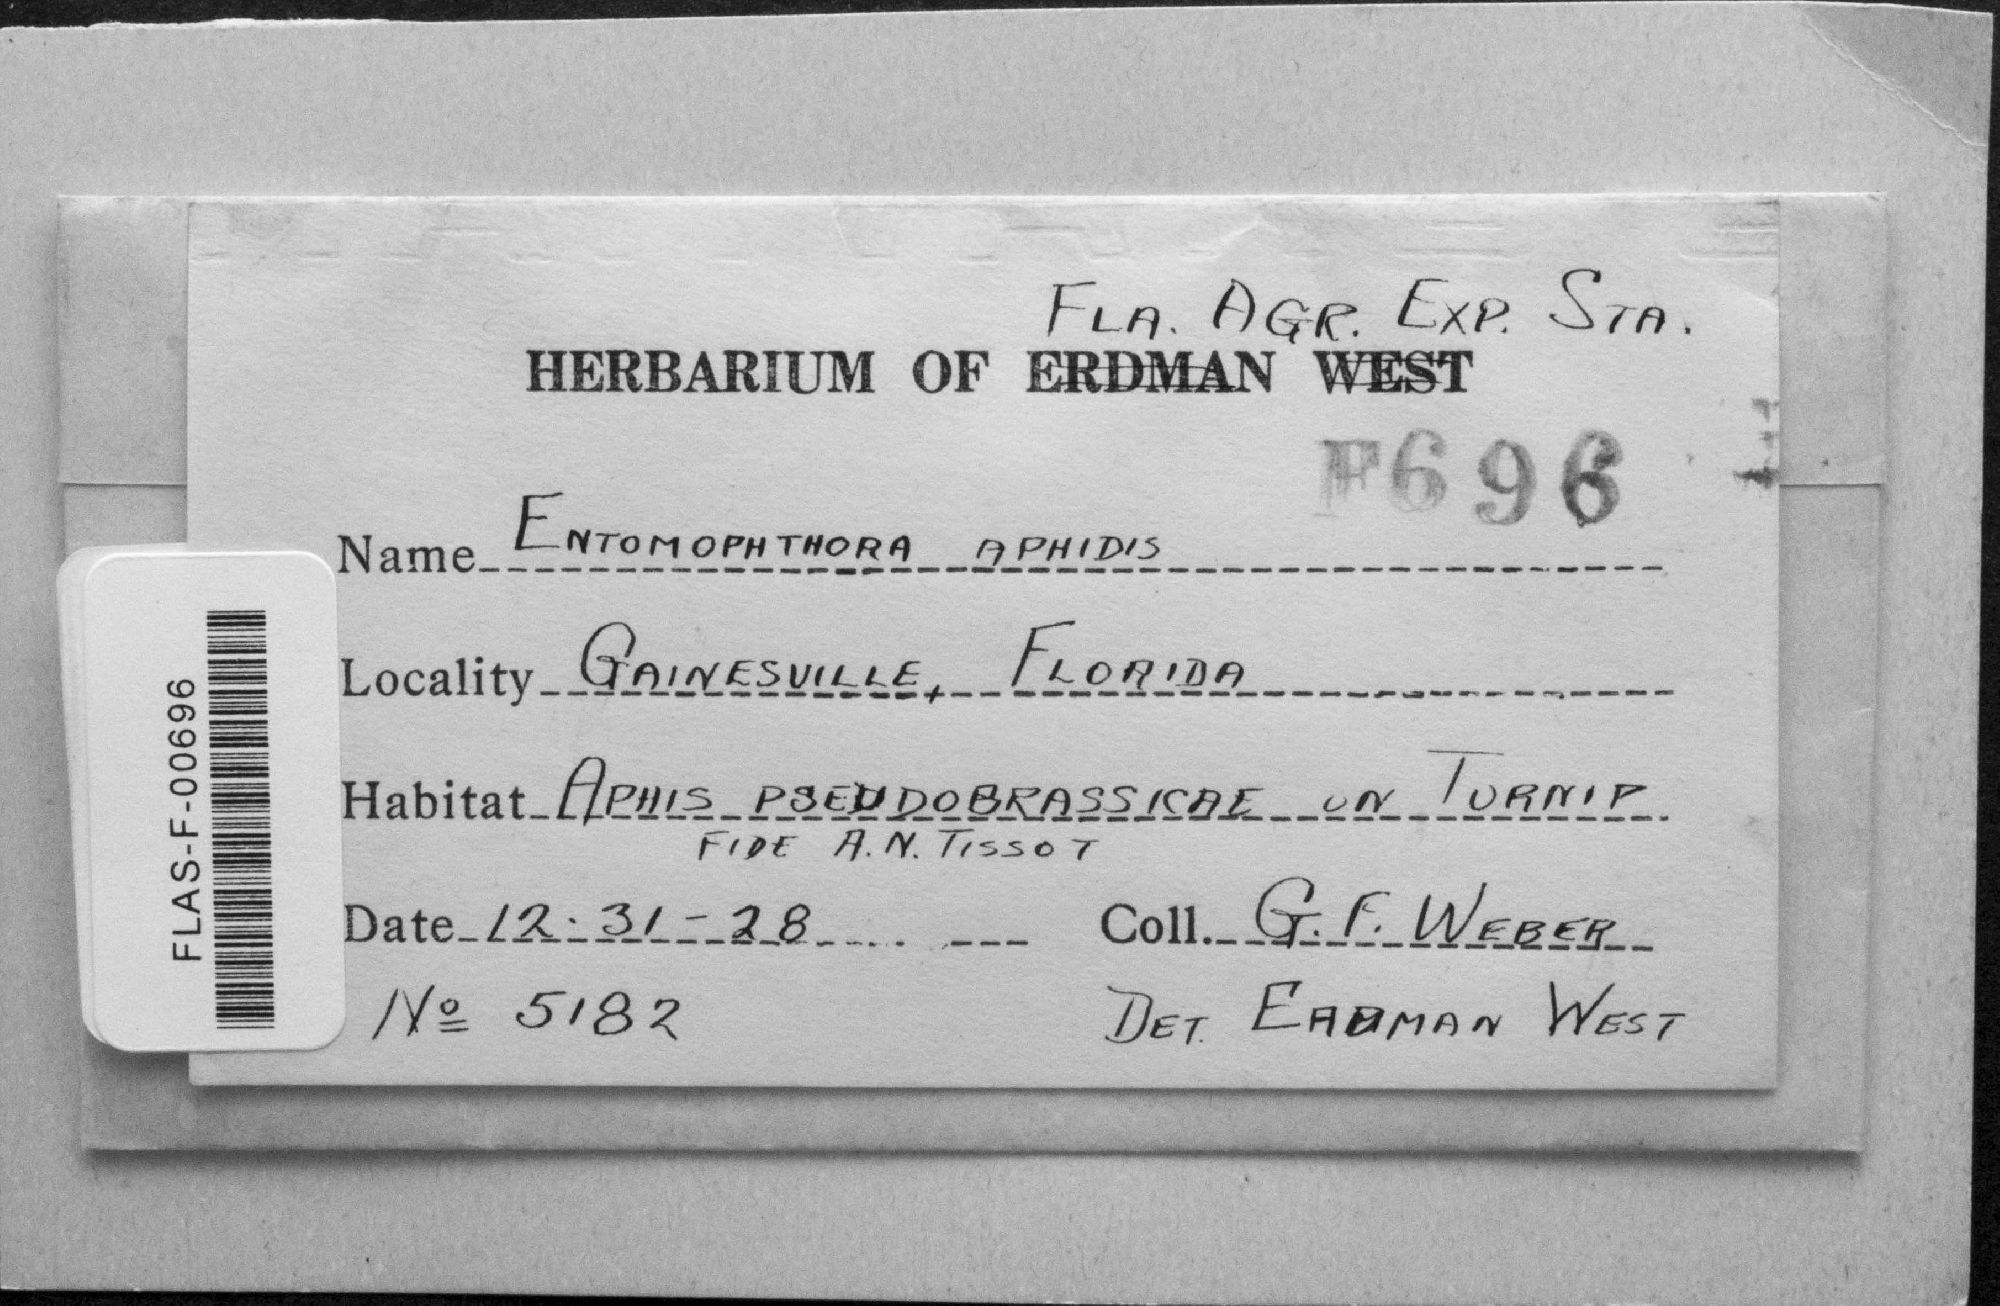 FLA. AGR. EXP. STA.
HERBARIUM OF ERDMAN WEST
F696
Name ENTOMOPHTHORA APHIDIS
Locality GAINESVILLE, FLORIDA
Habitat APHIS PSEUDOBRASSICAE ON TURNIP
FIDE A. N. TISSOT
Date 12-31-28 Coll. G. F. WEBER
No 5182 DET. ERDMAN WEST
FLAS-F-00696